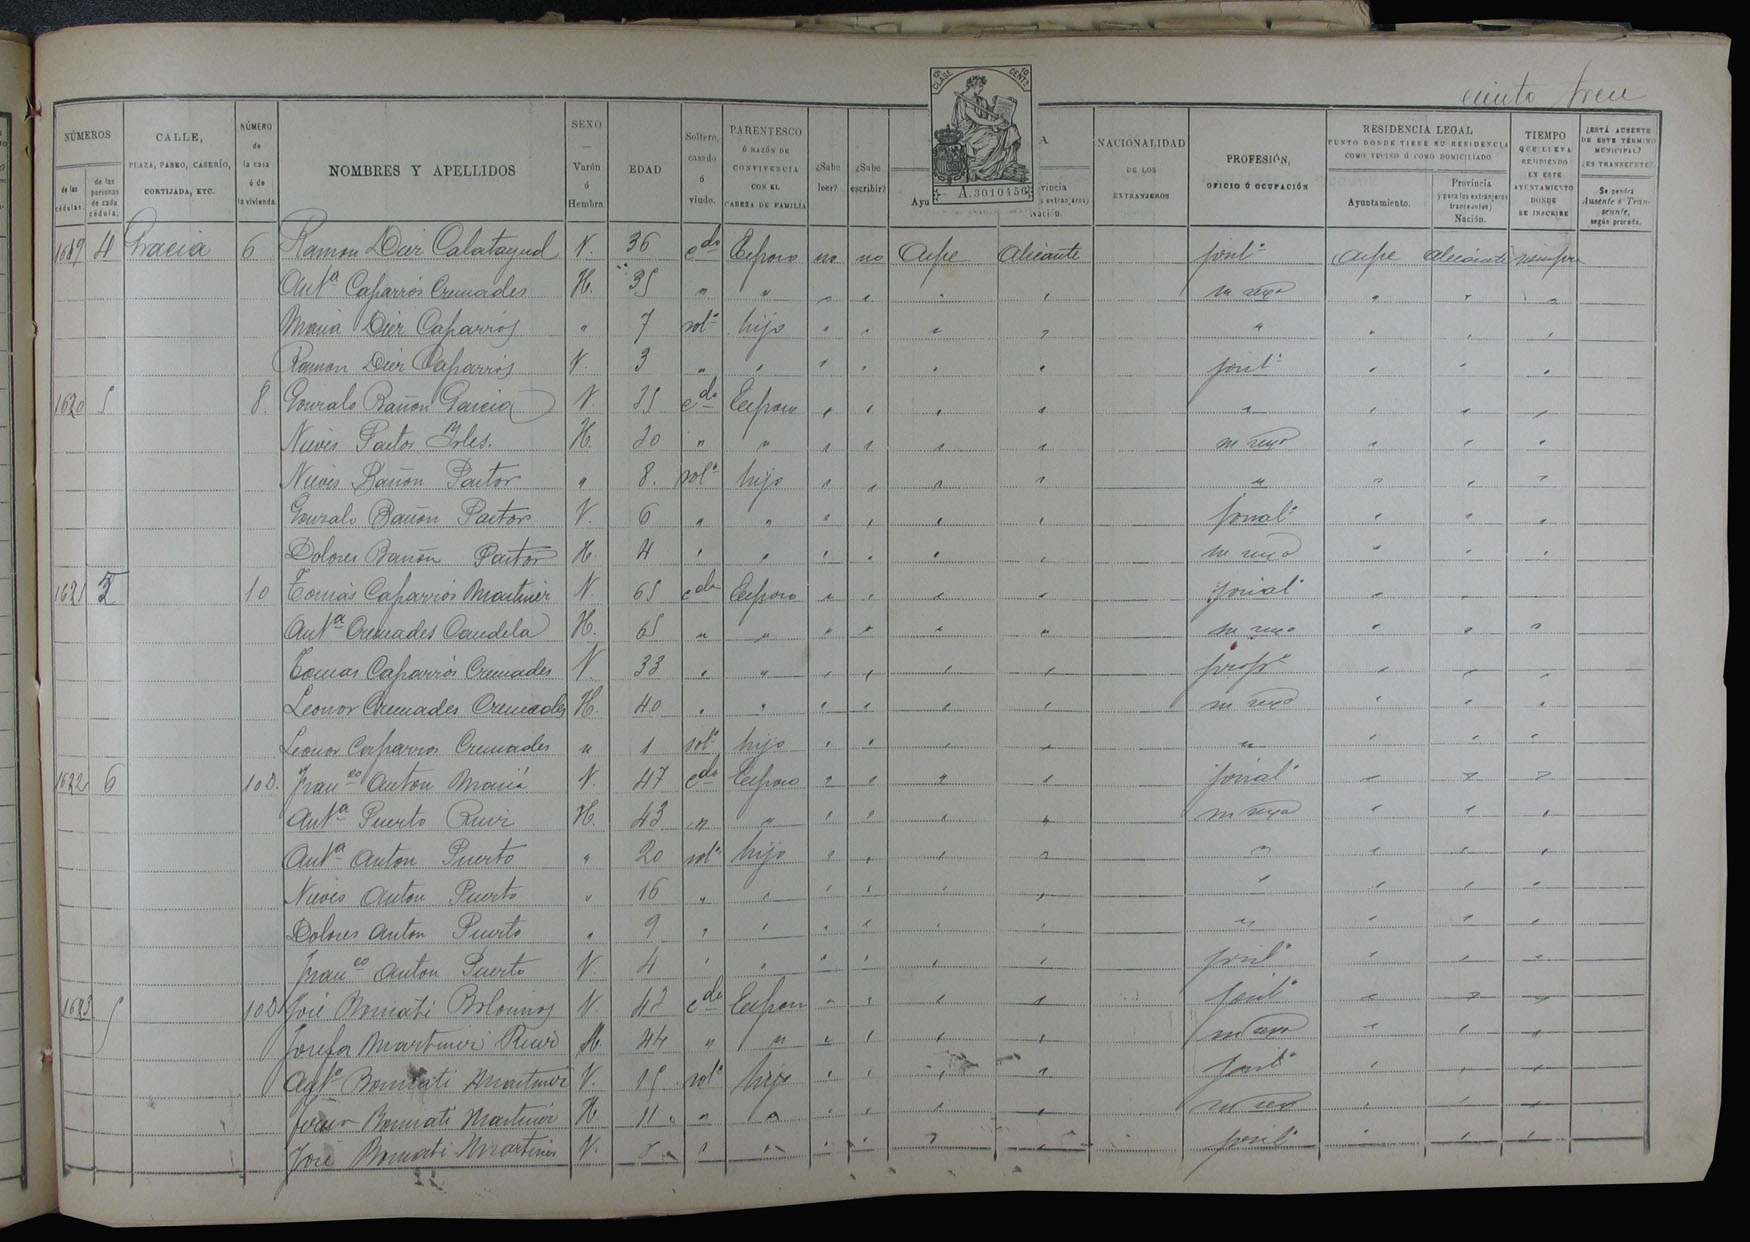 ciento trece
12ª CLASE
10 CENTˢ
A.3010456
NÚMEROS
de las cédulas.
de las personas de cada cédula.
CALLE,
PLAZA, PASEO, CASERÍO,
CORTIJADA, ETC.
NÚMERO
de
la casa
ó de
la vivienda.
NOMBRES Y APELLIDOS
SEXO
Varón
ó
Hembra.
EDAD
Soltero,
casado
ó
viudo.
PARENTESCO
Ó RAZÓN DE
CONVIVENCIA
CON EL
CABEZA DE FAMILIA
¿Sabe
leer?
¿Sabe
escribir?
Ayu
A
vincia
s extranjeros)
Nación.
NACIONALIDAD
DE LOS
EXTRANJEROS
PROFESIÓN,
OFICIO Ú OCUPACIÓN
RESIDENCIA LEGAL
PUNTO DONDE TIENE SU RESIDENCIA
COMO VECINO Ó COMO DOMICILIADO
Ayuntamiento.
Provincia
y para los extranjeros
transeuntes)
Nación.
TIEMPO
QUE LLEVA
RESIDIENDO
EN ESTE
AYUNTAMIENTO
DONDE
SE INSCRIBE
¿ESTÁ AUSENTE
DE ESTE TÉRMINO
MUNICIPAL?
¿ES TRANSEUNTE?
Se pondrá
Ausente ó Tran-
seunte,
según proceda.
1619 4 Gracia 6 Ramon Dier Calatayud V. 36 cdo Esposo no no Aspe Alicante jornlº Aspe Alicante siempre
Antª Caparrós Cremades H. 35 " " " " " " su sexo " " "
Maria Dier Caparrós " 7 solª hijo " " " " " " " "
Ramon Dier Caparrós V. 3 " " " " " " jornlº " " "
1620 5 8. Gonzalo Bañon Garcia V. 35 cdo Esposo " " " " " " " "
Nieves Pastor Irles. H. 30 " " " " " " su sexo " " "
Nieves Bañon Pastor " 8. solª hijo " " " " " " " "
Gonzalo Bañon Pastor V. 6 " " " " " " jornalº " " "
Dolores Bañon Pastor H. 4 " " " " " " su sexo " " "
1621 5 10 Tomás Caparrós Martinez V. 65 cdo Esposo " " " " jornalº " " "
Antª Cremades Candela H. 65 " " " " " " su sexo " " "
Tomas Caparrós Cremades V. 33 " " " " " " propº " " "
Leonor Cremades Cremades H. 40 " " " " " " su sexo " " "
Leonor Caparros Cremades " 1 solª hijo " " " " " " " "
1622 6 10 D. Franco Anton Mariá V. 47 cdo Esposo " " " " jornalº " " "
Antª Puerto Ruiz H. 43 " " " " " " su sexo " " "
Antª Anton Puerto " 20 solª hijo " " " " " " " "
Nieves Anton Puerto " 16 " " " " " " " " " "
Dolores Anton Puerto " 9 " " " " " " " " " "
Franco Anton Puerto V. 4 " " " " " " jornlº " " "
1623 5 10 D. José Bonmati V. cdo Esposo " " " " jornlº " " "
Josefa Martinez Ruiz H. 44 " " " " " " su sexo " " "
Antº Bonmati Martinez V. 15 solº hijo " " " " jornlº " " "
Bonmati Martinez H. 11 " " " " " " su sexo " " "
José Bonmati Martinez V. " " " " " " jornlº " " "